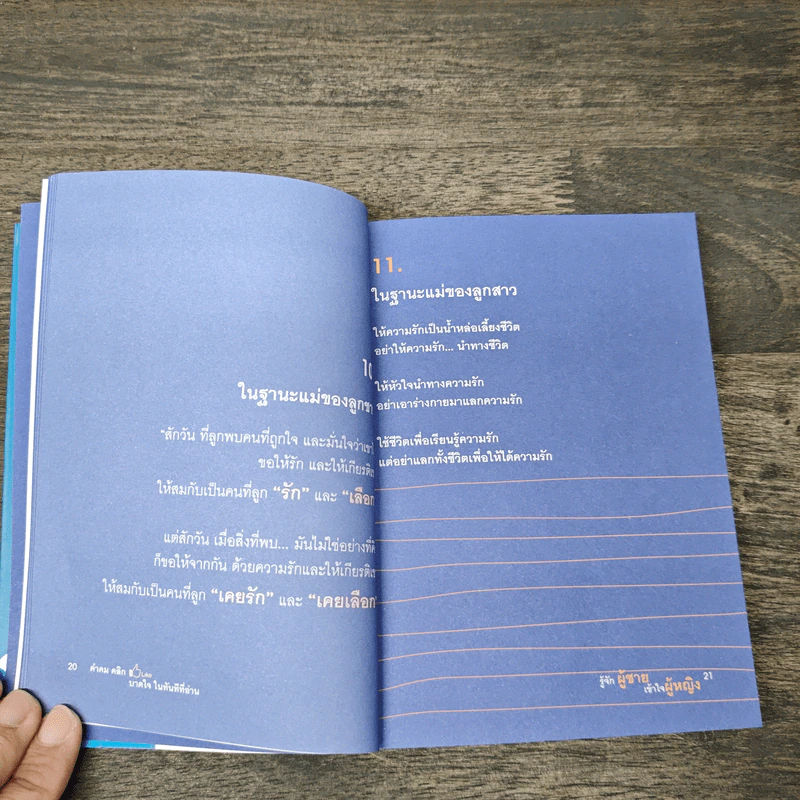 10
ในฐานะแม่ของลูกชา
“สักวัน ที่ลูกพบคนที่ถูกใจ และมั่นใจว่าเขาใ
ขอให้รัก และให้เกียรติเธ
ให้สมกับเป็นคนที่ลูก “รัก” และ “เลือก
แต่สักวัน เมื่อสิ่งที่พบ... มันไม่ใช่อย่างที่คิ
ก็ขอให้จากกัน ด้วยความรักและให้เกียรติเธ
ให้สมกับเป็นคนที่ลูก “เคยรัก” และ “เคยเลือก”
20 คำคม คลิก LIKE
บาดใจ ในทันทีที่อ่าน
11.
ในฐานะแม่ของลูกสาว
ให้ความรักเป็นน้ำหล่อเลี้ยงชีวิต
อย่าให้ความรัก... นำทางชีวิต
ให้หัวใจนำทางความรัก
อย่าเอาร่างกายมาแลกความรัก
ใช้ชีวิตเพื่อเรียนรู้ความรัก
แต่อย่าแลกทั้งชีวิตเพื่อให้ได้ความรัก
รู้จัก ผู้ชาย 21
เข้าใจ ผู้หญิง